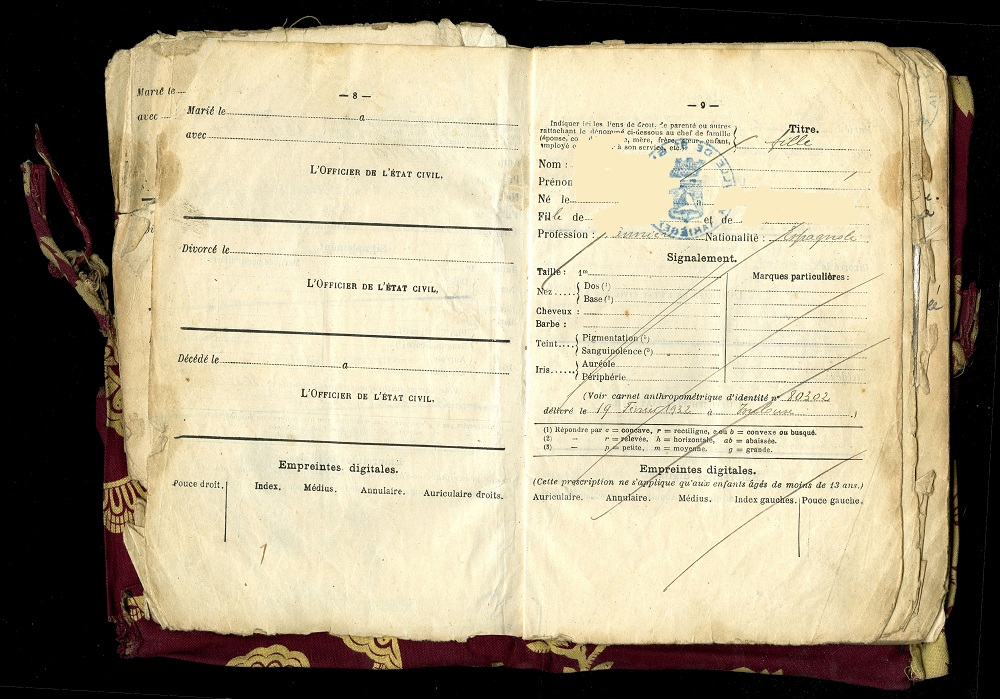 Marié le
avec
— 8 —
Marié le à
avec
L'OFFICIER DE L'ÉTAT CIVIL.
Divorcé le
L'OFFICIER DE L'ÉTAT CIVIL,
Décédé le à
L'OFFICIER DE L'ÉTAT CIVIL.
Empreintes digitales.
Pouce droit. Index. Médius. Annulaire. Auriculaire droits.
— 9 —
Indiquer ici les liens de droit, de parenté ou autres
rattachant le dénommé ci-dessous au chef de famille
(épouse, mère, frère, sœur, enfant,
employé à son service, etc.
Titre.
fille
Nom :
Prénom
Né le à
Fille de et de
Profession : Nationalité : Espagnole
Signalement.
Taille : 1m
Marques particulières :
Nez Dos (1)
Base (2)
Cheveux :
Barbe :
Teint Pigmentation (3)
Sanguinolence (3)
Iris Auréole
Périphérie
(Voir carnet anthropométrique d'identité n° 80302
délivré le 19 Février 1932 à Toulouse )
(1) Répondre par c = concave, r = rectiligne, x ou b = convexe ou busqué.
(2) — r = relevée, h = horizontale, ab = abaissée.
(3) — p = petite, m = moyenne, g = grande.
Empreintes digitales.
(Cette prescription ne s'applique qu'aux enfants âgés de moins de 13 ans.)
Auriculaire. Annulaire. Médius. Index gauches. Pouce gauche.